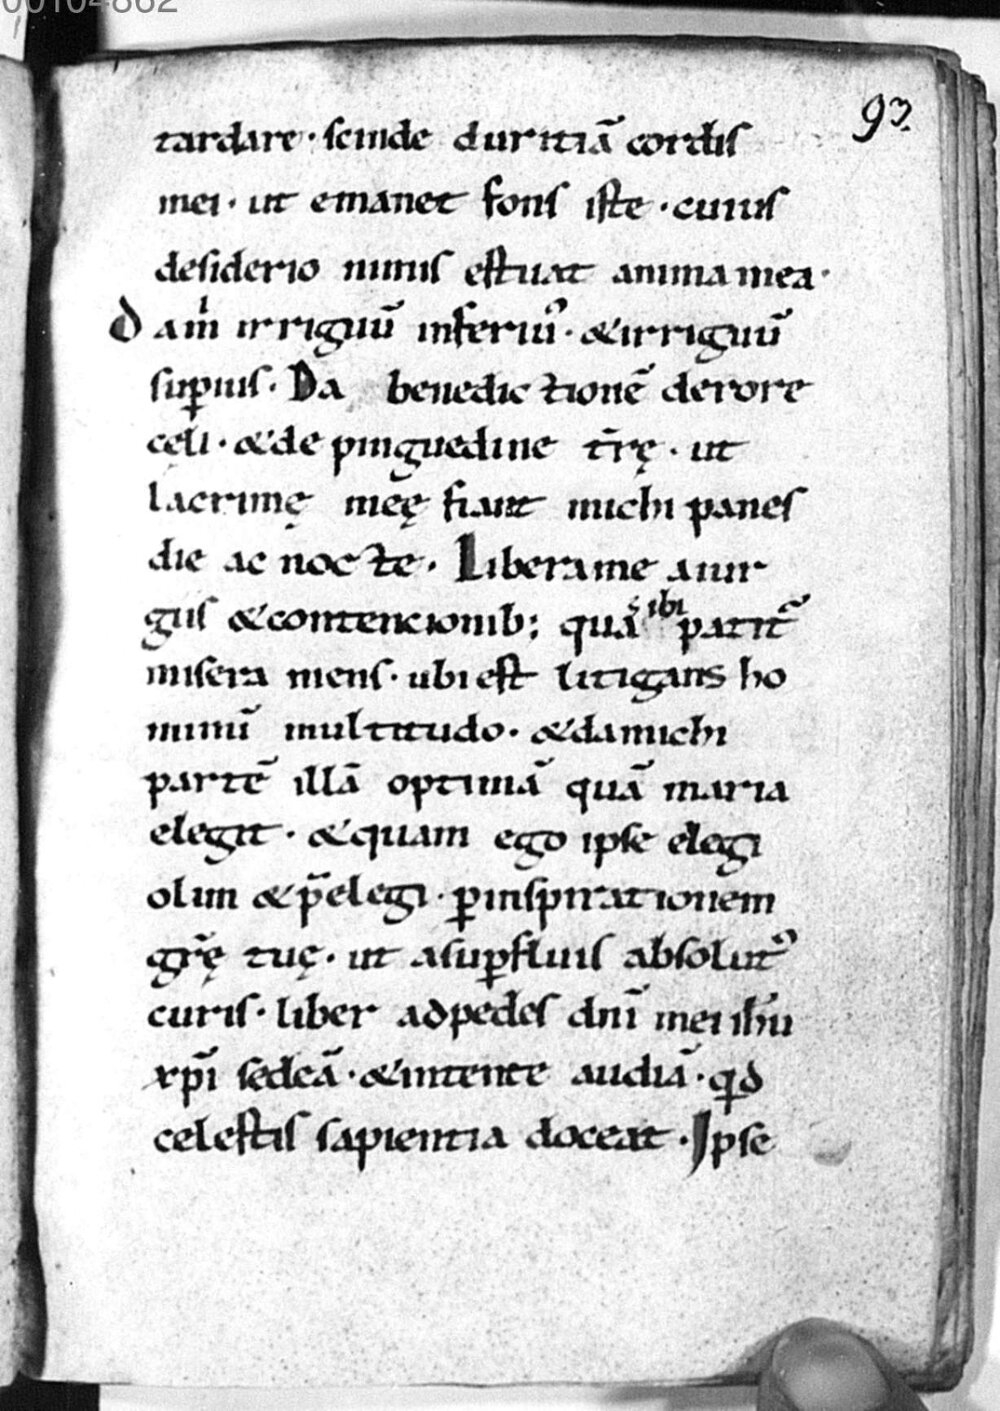 00104862
93.
tardare · scinde duritiā cordis
mei · ut emanet fons iste · cuius
desiderio nimis estuat anima mea ·
Da m̍ irriguū inferiꝰ · & irriguū
suꝑius · Da benedictionē de rore
cęli · & de pinguedine t̄rę · ut
lacrimę meę fiant michi panes
die ac nocte · Libera me a iur
giis & contencionib; quā s̄ ibi patit᷑
misera mens · ubi est litigans ho
minū multitudo · & da michi
partē illā optimā quā maria
elegit · & quam ego ipse elegi
olim & p̄elegi · ꝑ inspirationem
gr̄ę tuę · ut a suꝑfluis absolutꝰ
curis · liber ad pedes dn̄i mei ih̄u
xp̄i sedeā · & intente audiā · qđ
celestis sapientia doceat · Ipse